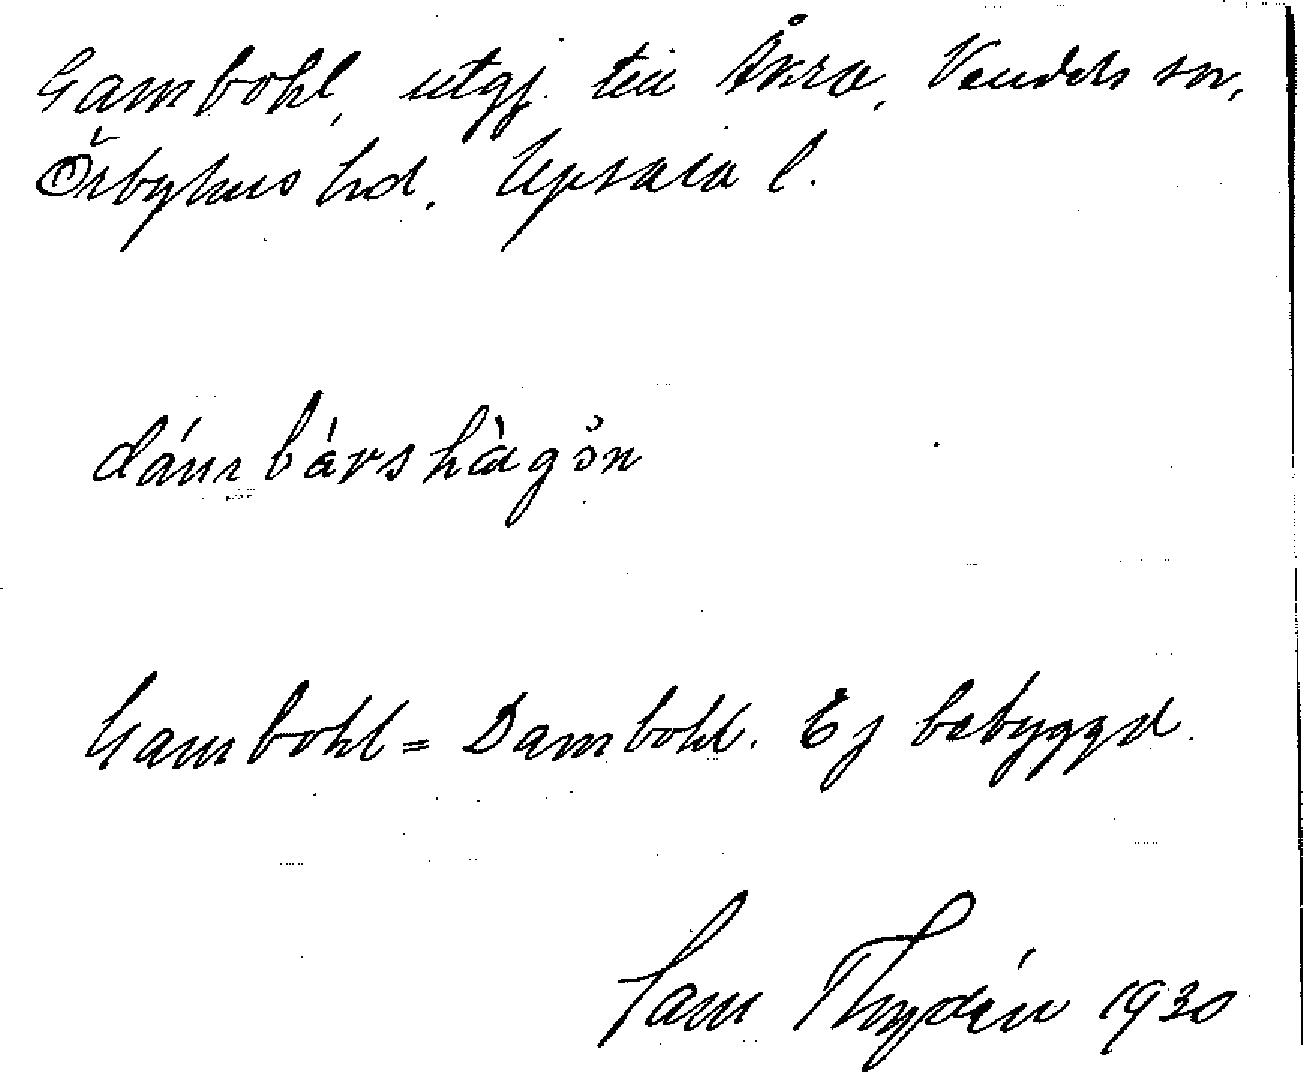 Gambohl, utgj. till Åkra, Vendels sn,
Örbyhus hd. Upsala l.
dámbárshàgǒn
Gambohl = Dambohl. Ej bebyggd.
Sam Thydén 1930